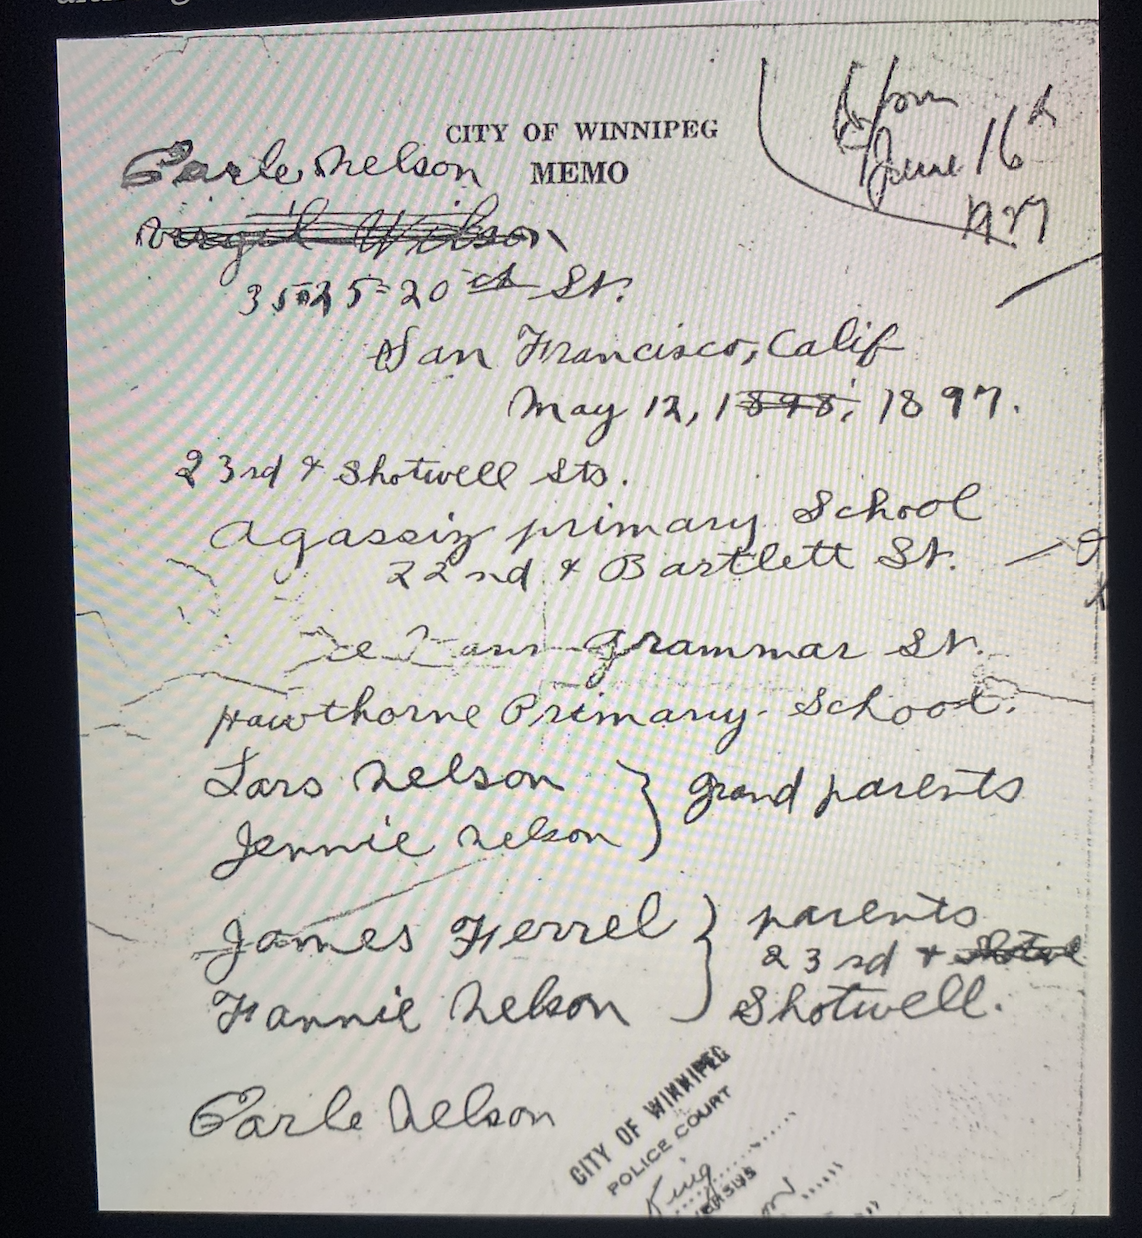 June 16th
1927
CITY OF WINNIPEG
Earle Nelson MEMO
Virgil Wilson
3525-20th St.
San Francisco, Calif
May 12, 1898, 1897.
23rd & Shotwell Sts.
Agassiz primary School
22nd & Bartlett St.
grammar St.
Hawthorne Primary School.
Lars Nelson } grand parents
Jennie Nelson
James Ferrel } parents
23rd & Shotwe
Fannie Nelson Shotwell.
Earle Nelson
CITY OF WINNIPEG
POLICE COURT
King
VERSUS